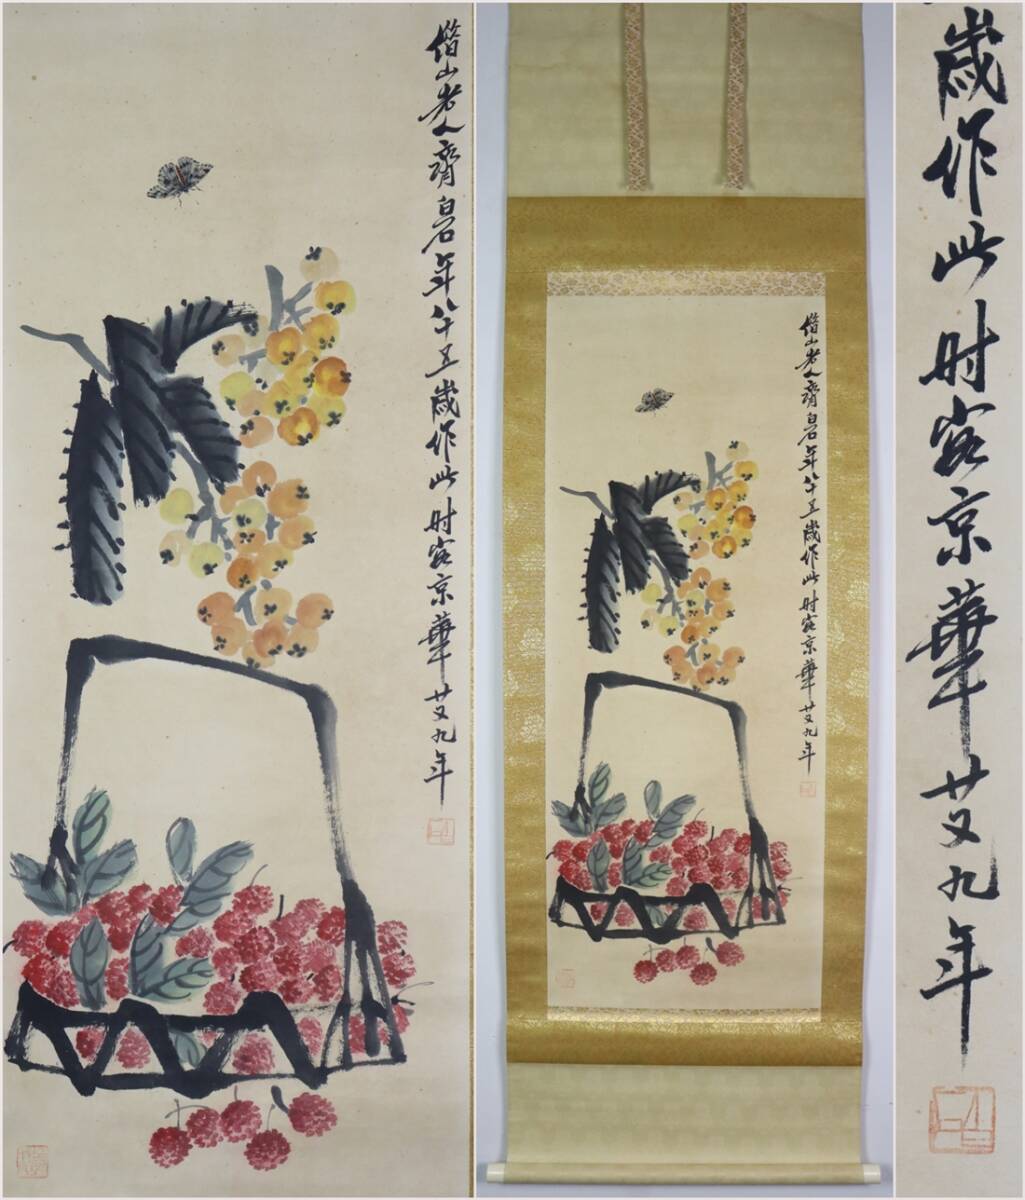 借山老人齊白石年八十五歲作此时客京華廿又九年
借山老人齊白石年八十五歲作此时客京華廿又九年
歲作此时客京華廿又九年